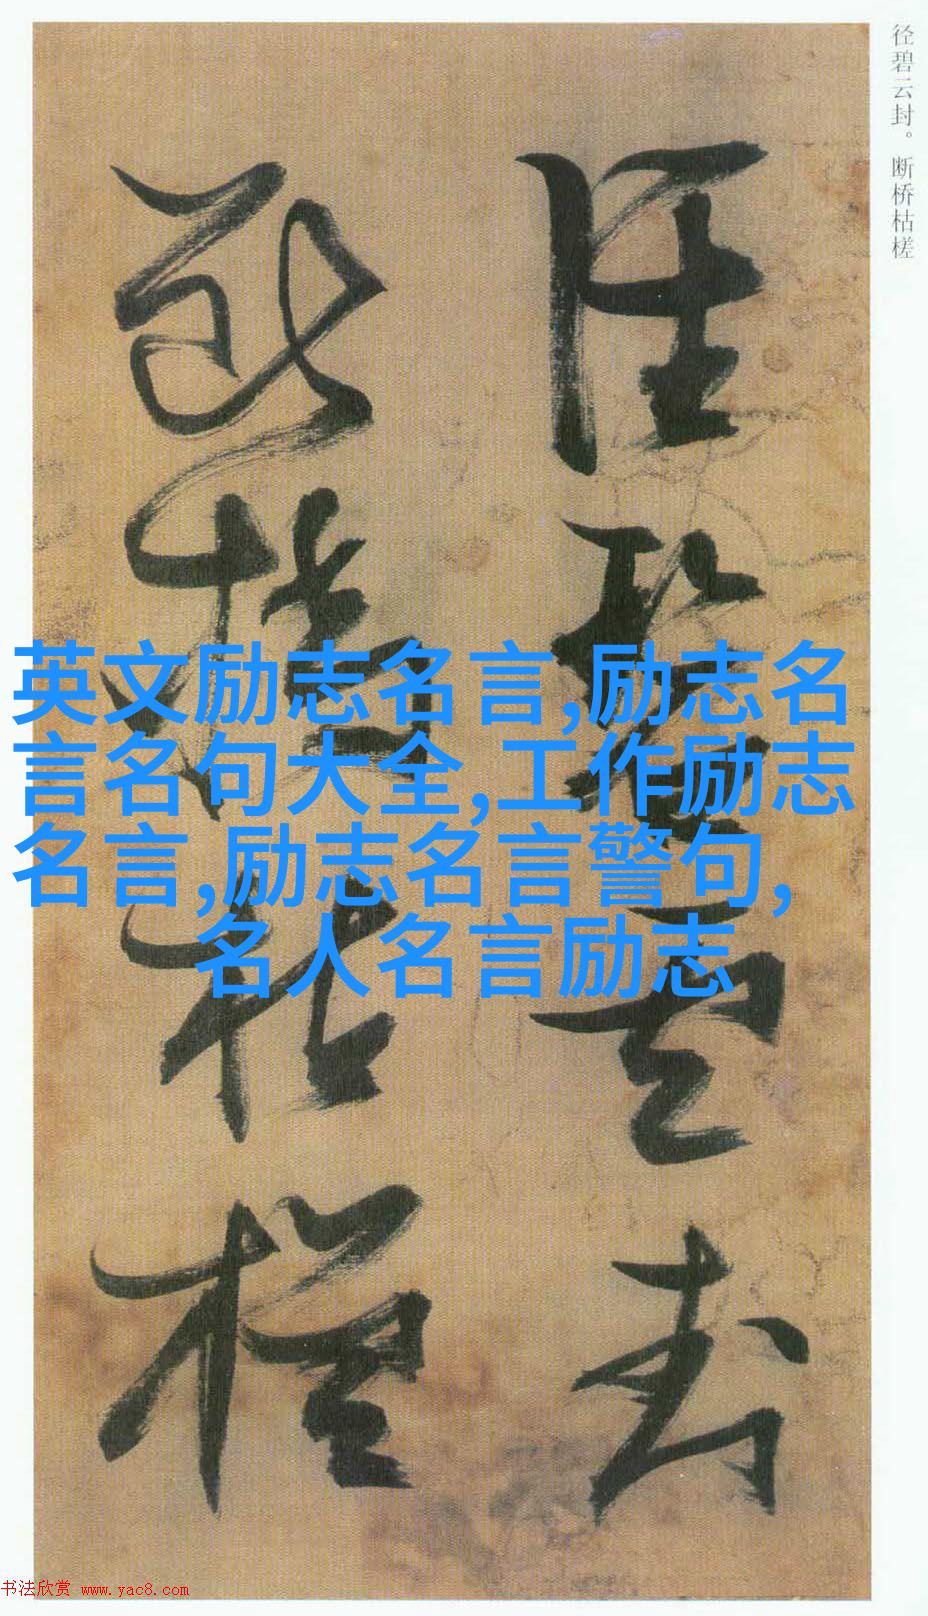 径碧云封。断桥枯槎
径碧云封
断桥枯槎
英文励志名言,励志名
言名句大全,工作励志
名言,励志名言警句,
名人名言励志
书法欣赏 www.yac8.com